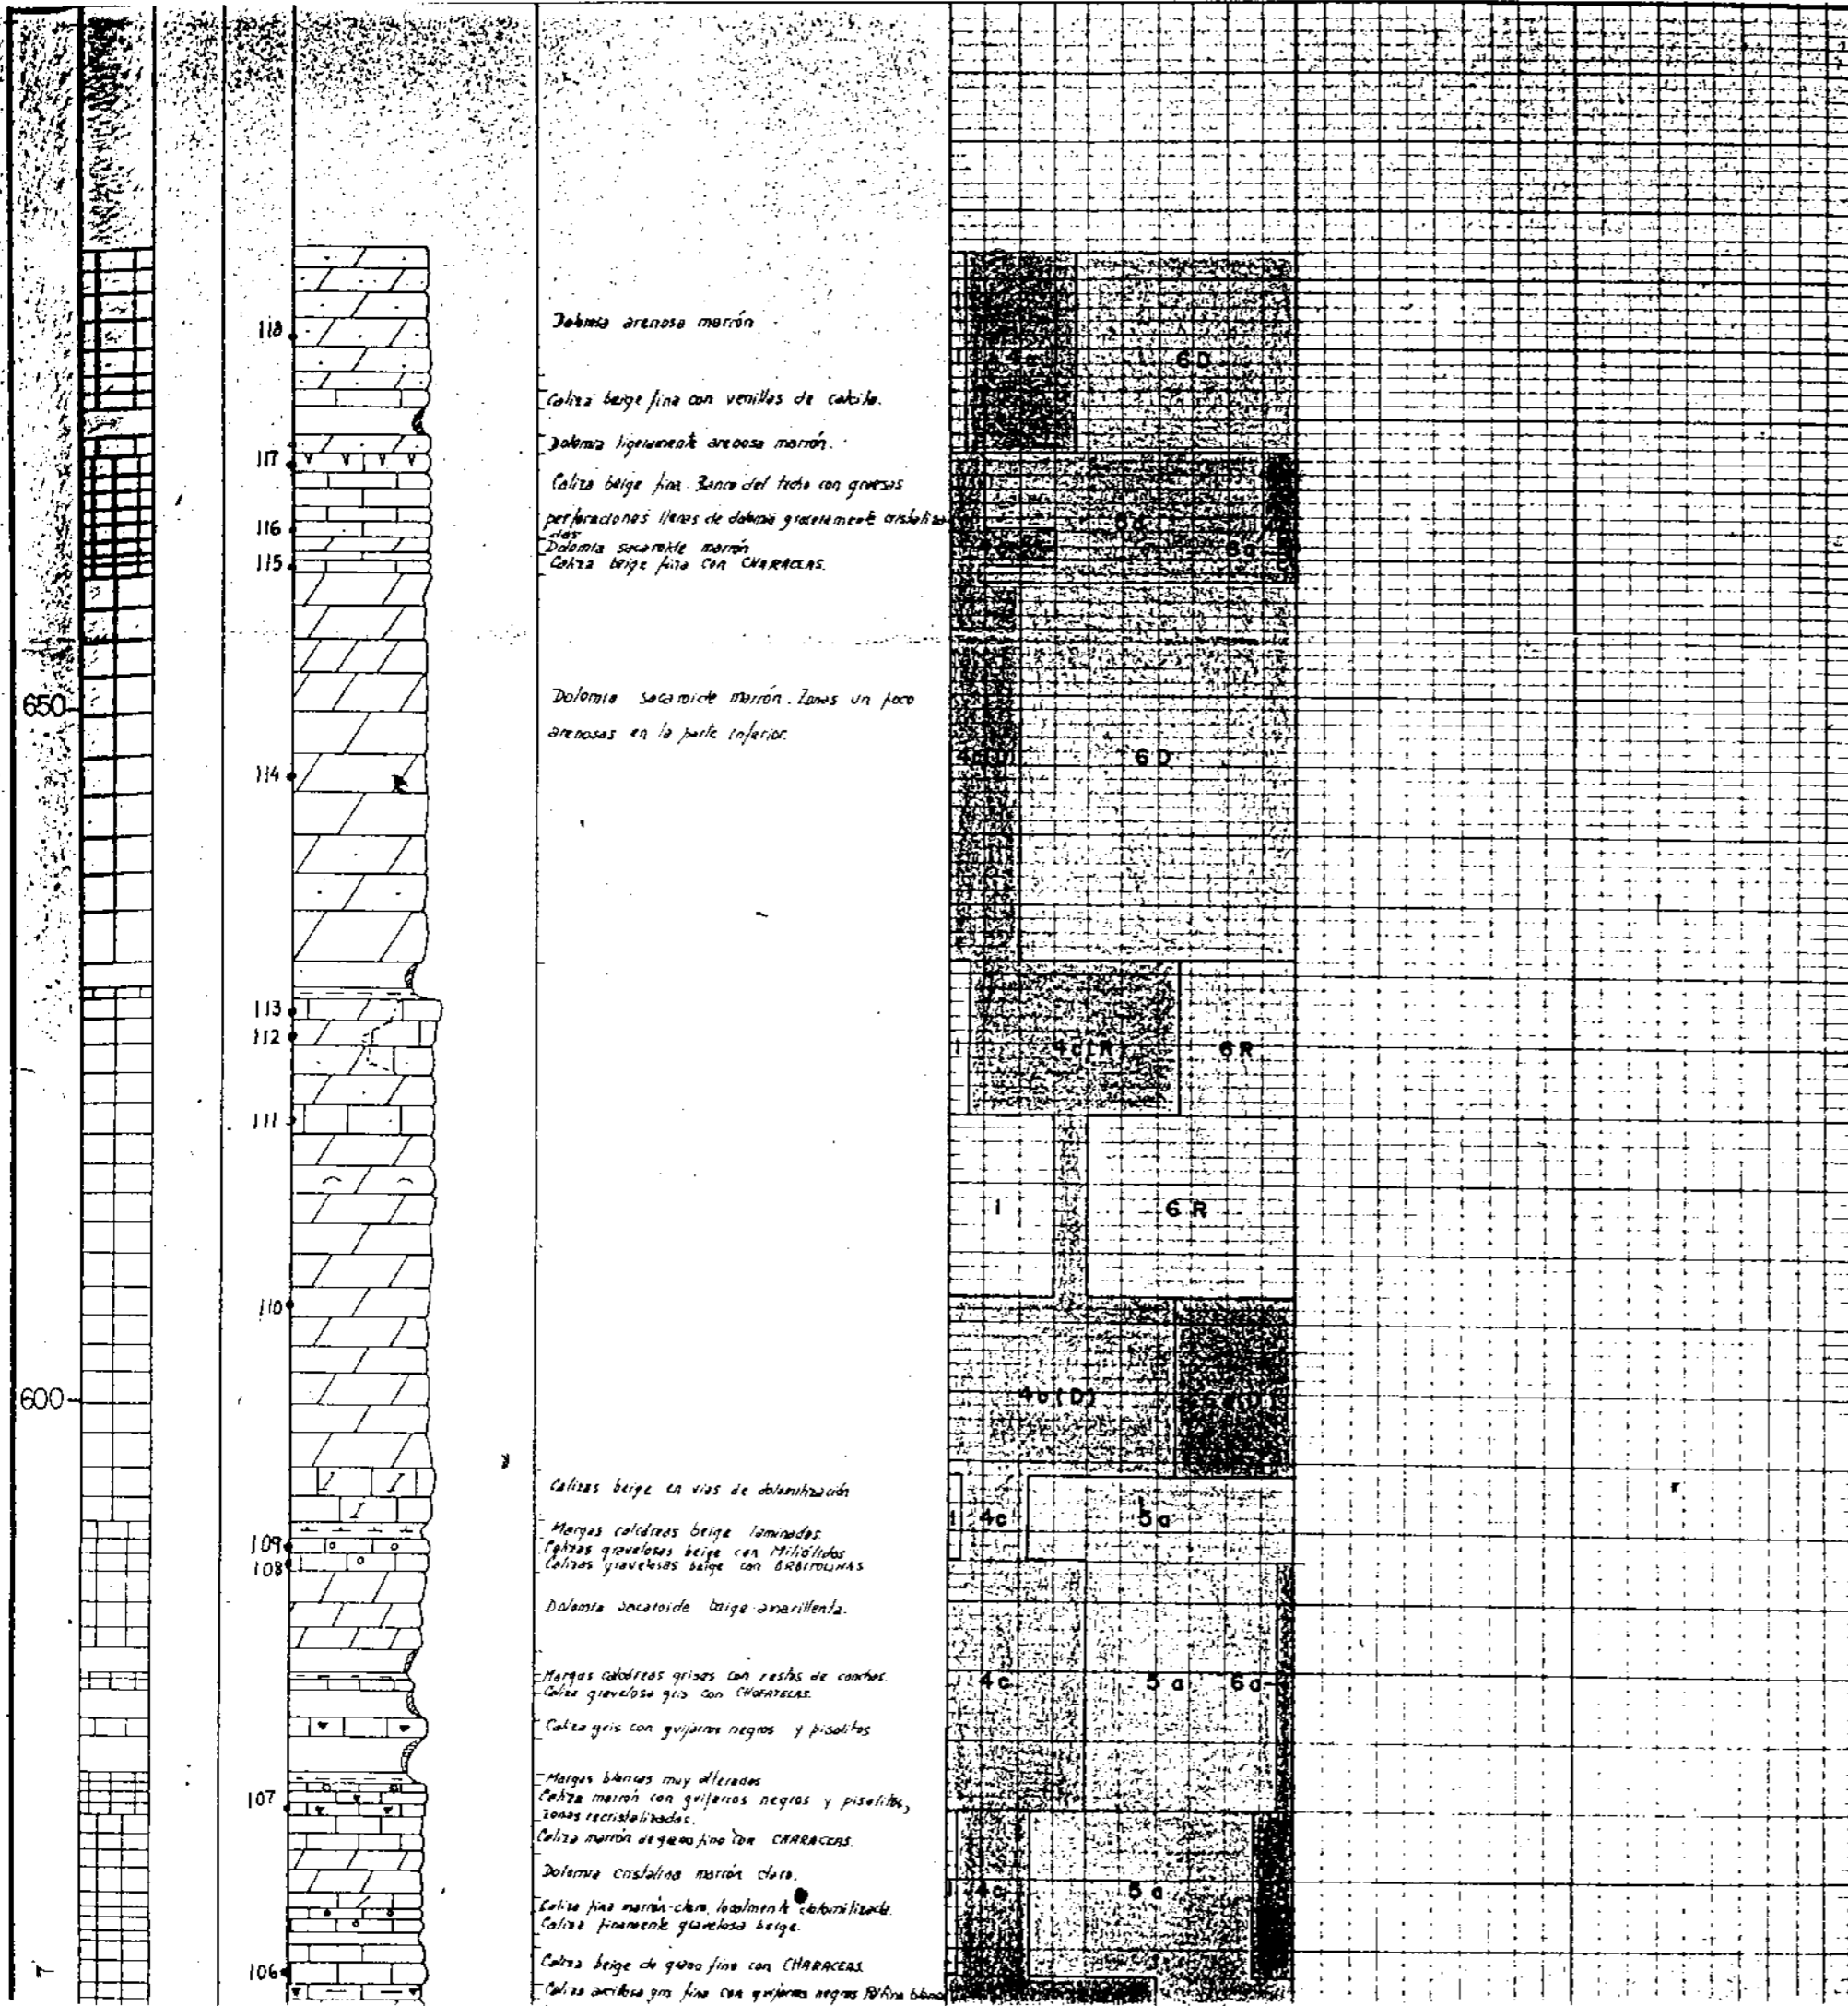 118
Dolomia arenosa marrón
6D
Caliza beige fina con venillas de calcita.
Dolomia ligeramente arenosa marrón.
117
Caliza beige fina. Banco del techo con gruesas
perforaciones llenas de dolomia groseramente cristaliza
das
116
5a
6a
Dolomia sacaroide marrón
115
Caliza beige fina con CHARACEAS.
650
Dolomia sacaroide marrón. Zonas un poco
arenosas en la parte inferior.
114
4c(D)
6D
113
112
1
4c(R)
6R
111
1
6R
110
600
4c(D)
Calizas beige en vias de dolomitización
1
4c
5a
Margas calcáreas beige laminadas.
109
Calizas gravelosas beige con Miliólidos
108
Calizas gravelosas beige con ORBITOLINAS
Dolomia sacaroide beige-amarillenta.
Margas calcáreas grises con restos de conchas.
1
4c
5a
6a
Caliza gravelosa gris con CHOFATELAS.
Caliza gris con guijarros negros y pisolitos
Margas blancas muy alteradas
107
Caliza marrón con guijarros negros y pisolitos,
zonas recristalizadas.
Caliza marrón de grano fino con CHARACEAS.
Dolomia cristalina marrón claro.
1
4c
5a
Caliza fina marrón-claro, localmente dolomitizada.
Caliza finamente gravelosa beige.
106
Caliza beige de grano fino con CHARACEAS.
Caliza arcillosa gris fina con guijarros negros